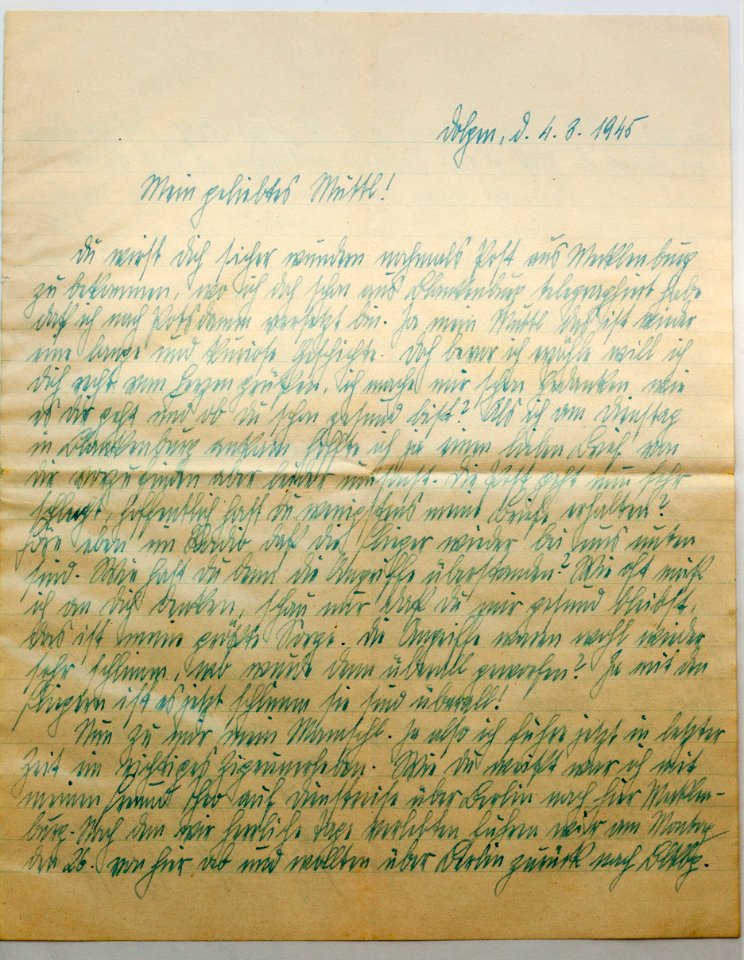 Dolgen, d. 4.3.1945
Mein geliebtes Muttl!
Du wirst Dich sicher wundern nochmals Post aus Mecklenburg
zu bekommen, wo ich doch schon aus Blankenburg telegraphiert habe
daß ich nach Potsdamm versetzt bin. Ja mein Muttl das ist wieder
eine lange und kuriose Geschichte. Doch bevor ich erzähle will ich
Dich recht vom Herzen grüßen. Ich mache mir schon Gedanken wie
es dir geht und ob du schon gesund bist? Als ich am Dienstag
in Blankenburg ankam hoffte ich ja einen lieben Brief von
dir vorzufinden aber leider umsonst. Die Post geht nun sehr
schlecht, hoffentlich hast du wenigstens meine Briefe erhalten?
Höre eben im Radio, daß die Flieger wieder bei uns unten
sind. Wie hast du denn die Angriffe überstanden? Wie oft muß
ich an dich denken, schau nur daß du mir gesund bleibst,
das ist meine größte Sorge. Die Angriffe waren wohl wieder
sehr schlimm, wo wurde denn überall geworfen? Ja mit den
Fliegern ist es jetzt schlimm sie sind überall!
Nun zu mir mein Mamschl. Ja also ich führe jetzt in letzter
Zeit ein richtiges Zigeunerleben. Wie du weißt war ich mit
meinem Freund auf Dienstreise über Berlin nach hier Mecklen-
burg. Nach dem wir herrliche Tage verlebten fuhren wir am Montag
den 26. von hier ab und wollten über Berlin zurück nach Blkbg.